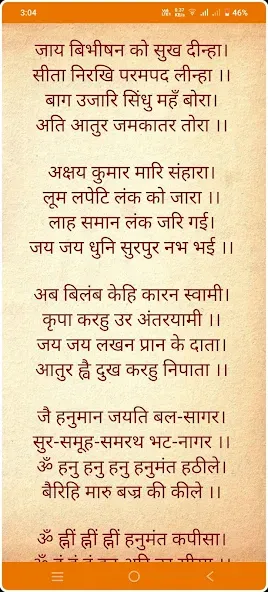 3:04
46%
जाय बिभीषन को सुख दीन्हा।
सीता निरखि परमपद लीन्हा ।।
बाग उजारि सिंधु महँ बोरा।
अति आतुर जमकातर तोरा ।।
अक्षय कुमार मारि संहारा।
लूम लपेटि लंक को जारा ।।
लाह समान लंक जरि गई।
जय जय धुनि सुरपुर नभ भई ।।
अब बिलंब केहि कारन स्वामी।
कृपा करहु उर अंतरयामी ।।
जय जय लखन प्रान के दाता।
आतुर ह्वै दुख करहु निपाता ।।
जै हनुमान जयति बल-सागर।
सुर-समूह-समरथ भट-नागर ।।
ॐ हनु हनु हनु हनुमंत हठीले।
बैरिहि मारु बज्र की कीले ।।
ॐ ह्नीं ह्नीं ह्नीं हनुमंत कपीसा।